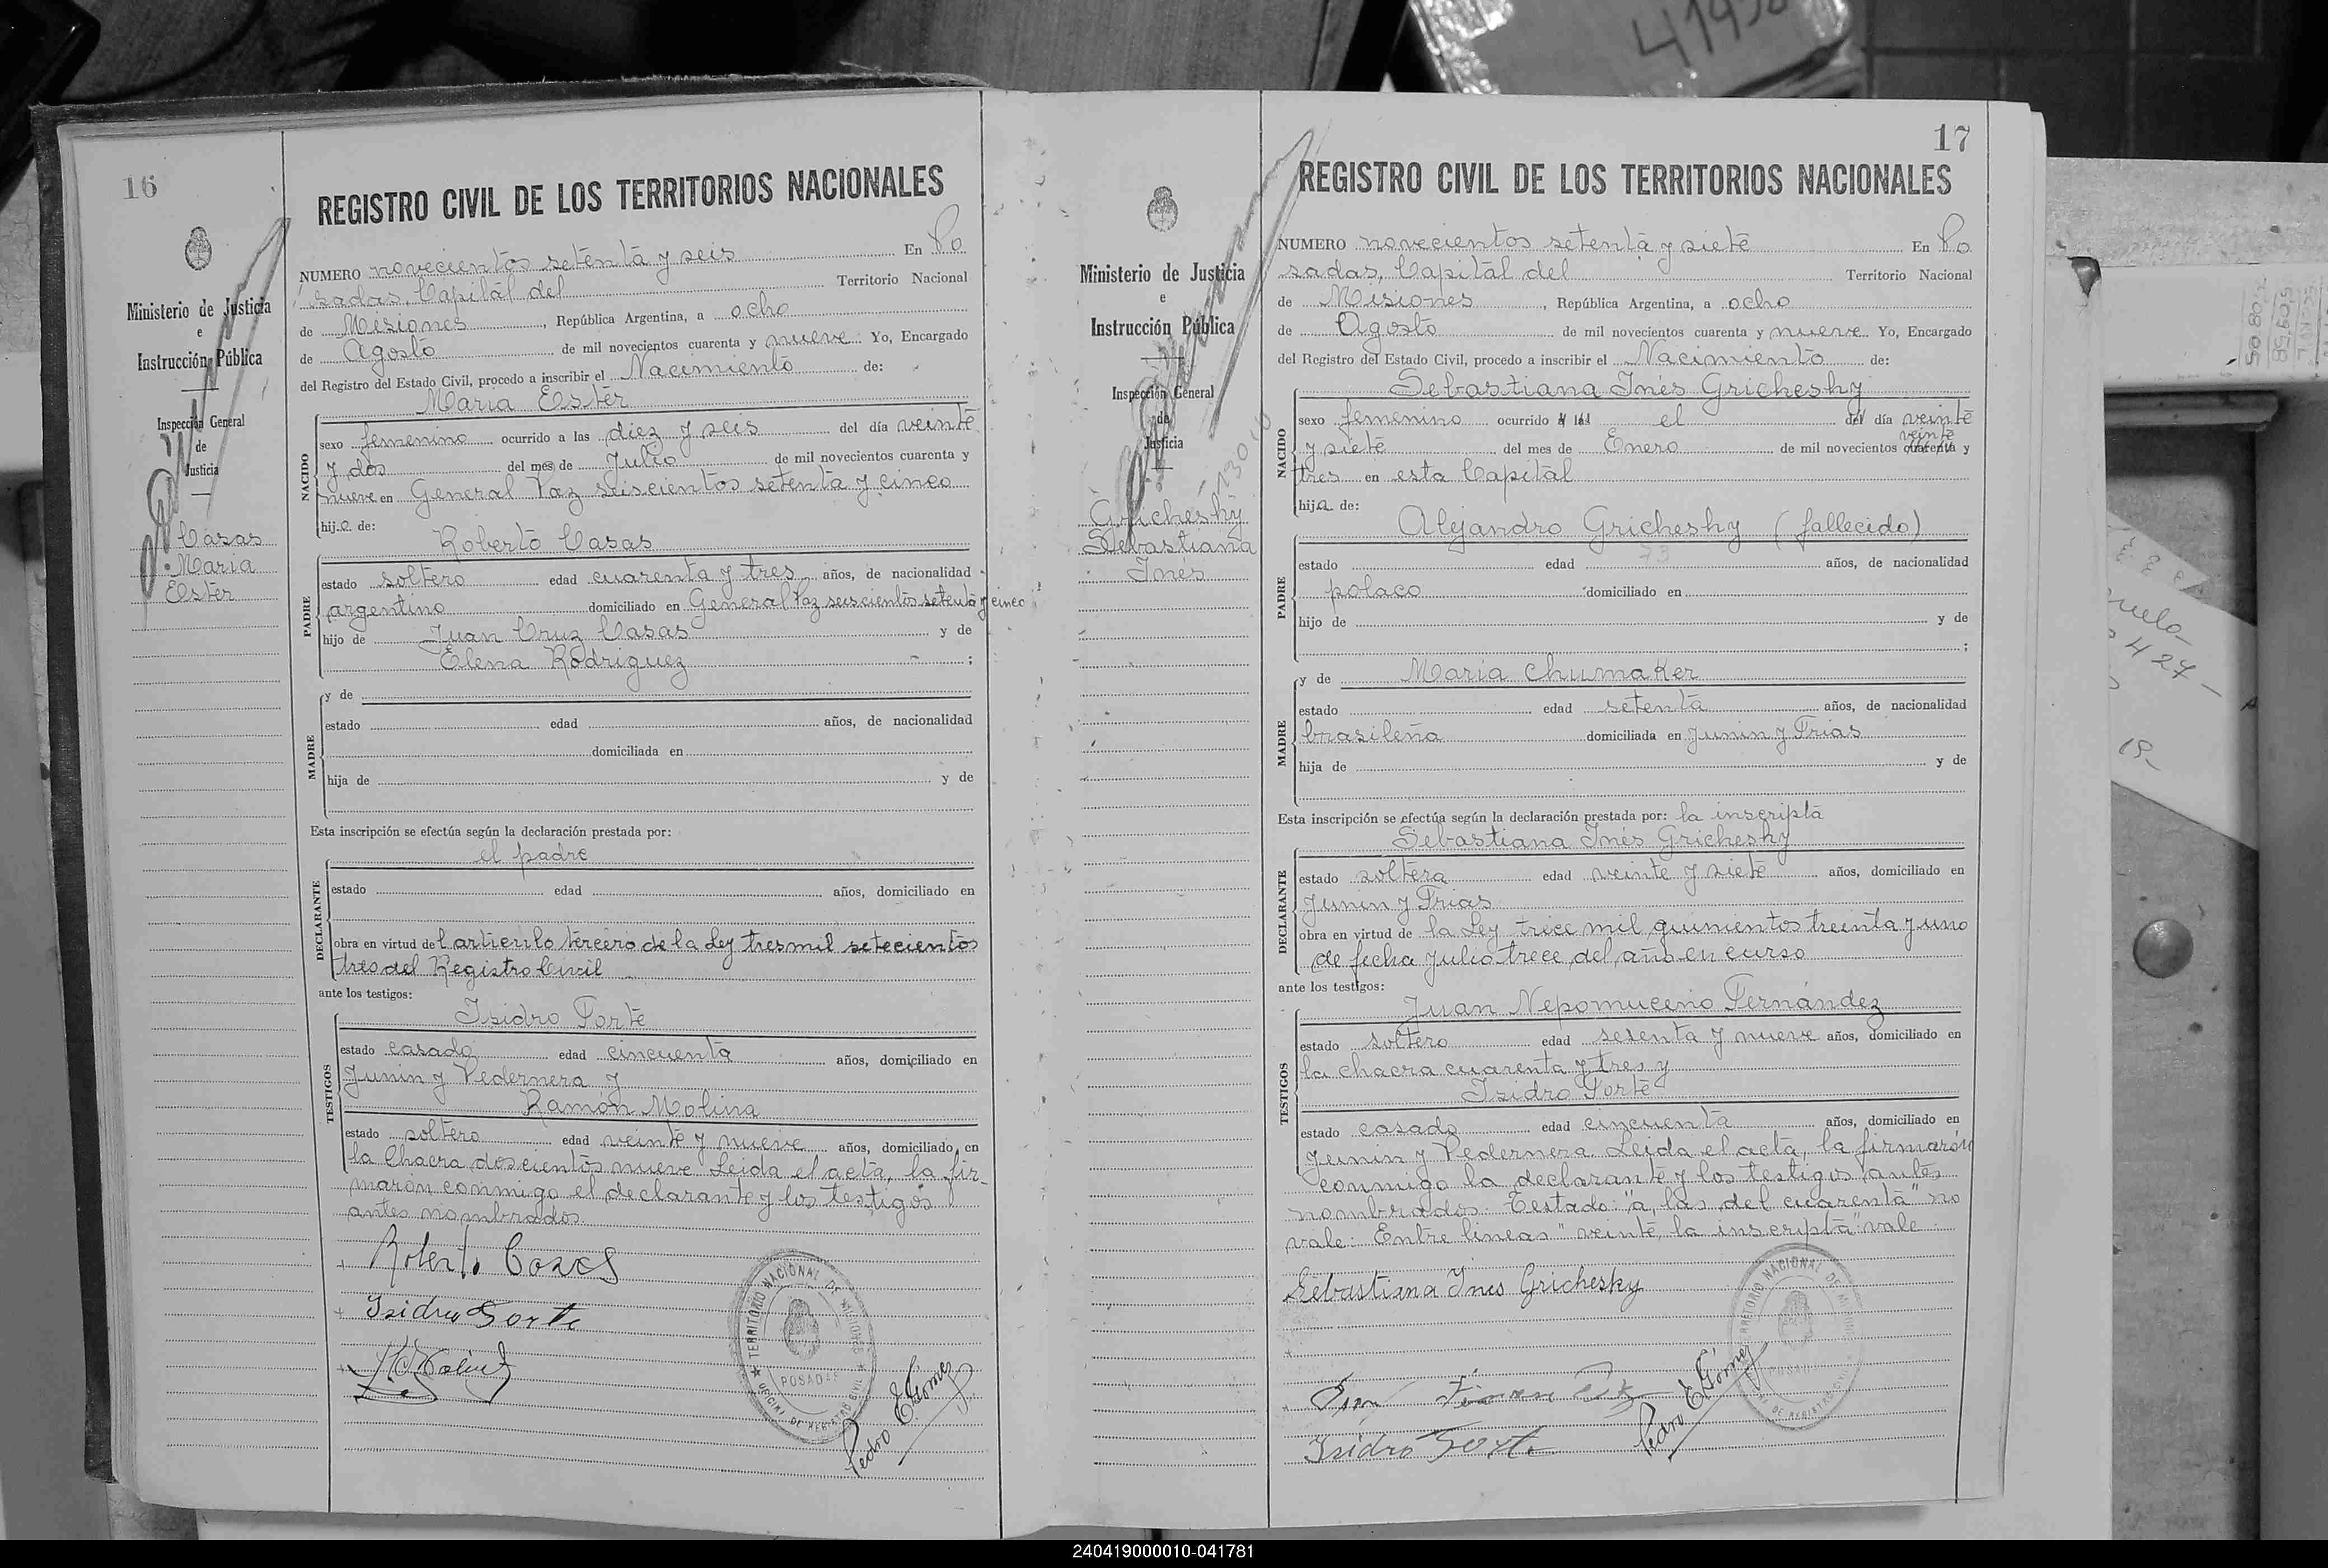 16
REGISTRO CIVIL DE LOS TERRITORIOS NACIONALES
Ministerio de Justicia
e
Instrucción Pública
Inspección General
de
Justicia
Casas
Maria
Ester
NUMERO novecientos setenta y seis En Po
sadas, Capital del Territorio Nacional
de Misiones, República Argentina, a ocho
de Agosto de mil novecientos cuarenta y nueve Yo, Encargado
del Registro del Estado Civil, procedo a inscribir el Nacimiento de:
Maria Ester
NACIDO
sexo femenino ocurrido a las diez y seis del día veinte
y dos del mes de Julio de mil novecientos cuarenta y
nueve en General Paz seiscientos setenta y cinco
hija de:
Roberto Casas
PADRE
estado soltero edad cuarenta y tres años, de nacionalidad
argentino domiciliado en General Paz seiscientos setenta y cinco
hijo de Juan Cruz Casas y de
Elena Rodriguez ;
MADRE
y de
estado edad años, de nacionalidad
domiciliada en
hija de y de
Esta inscripción se efectúa según la declaración prestada por:
el padre
DECLARANTE
estado edad años, domiciliado en
obra en virtud del articulo tercero de la Ley tres mil setecientos
tres del Registro Civil
ante los testigos:
TESTIGOS
Isidro Forte
estado casado edad cincuenta años, domiciliado en
Junin y Pedernera y
Ramón Molina
estado soltero edad veinte y nueve años, domiciliado en
la Chacra doscientos nueve. Leida el acta, la fir-
maron conmigo el declarante y los testigos
antes nombrados.
Roberto Casas
Isidro Forte
TERRITORIO NACIONAL DE MISIONES
POSADAS
OFICINA DE REGISTRO CIVIL
Pedro E Gómez
17
REGISTRO CIVIL DE LOS TERRITORIOS NACIONALES
Ministerio de Justicia
e
Instrucción Pública
Inspección General
de
Justicia
Grichesky
Sebastiana
Inés
NUMERO novecientos setenta y siete En Po
sadas, Capital del Territorio Nacional
de Misiones, República Argentina, a ocho
de Agosto de mil novecientos cuarenta y nueve Yo, Encargado
del Registro del Estado Civil, procedo a inscribir el Nacimiento de:
Sebastiana Inés Grichesky
NACIDO
sexo femenino ocurrido a las el del día veinte
veinte
y siete del mes de Enero de mil novecientos cuarenta y
tres en esta Capital
hija de:
Alejandro Grichesky (fallecido)
PADRE
73
estado edad años, de nacionalidad
polaco domiciliado en
hijo de y de
;
MADRE
y de Maria Chumaker
estado edad setenta años, de nacionalidad
brasileña domiciliada en Junin y Frias
hija de y de
Esta inscripción se efectúa según la declaración prestada por: la inscripta
Sebastiana Inés Grichesky
DECLARANTE
estado soltera edad veinte y siete años, domiciliado en
Junin y Frias
obra en virtud de la Ley trece mil quinientos treinta y uno
de fecha Julio trece del año en curso
ante los testigos:
TESTIGOS
Juan Nepomuceno Fernández
estado soltero edad sesenta y nueve años, domiciliado en
la chacra cuarenta y tres y
Isidro Forte
estado casado edad cincuenta años, domiciliado en
Junin y Pedernera. Leida el acta, la firmarón
conmigo la declarante y los testigos antes
nombrados. Testado: "a, las del cuarenta" no
vale: Entre lineas "veinte, la inscripta" vale.
Sebastiana Ines Grichesky
Isidro Forte
Pedro E Gómez
TERRITORIO NACIONAL DE MISIONES
POSADAS
DE REGISTRO CIVIL
240419000010-041781